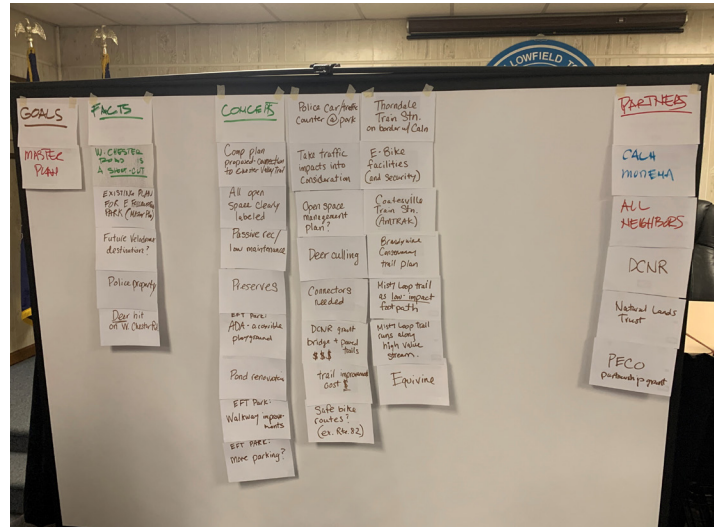 LLOWFIELD T
GOALS
MASTER
PLAN
FACTS
W. CHESTER
ROAD IS
A SHORT-CUT
EXISTING PLAN
FOR E. FALLOWFIELD
PARK
Future Velodrome
destination?
Police property
Deer hit
on W. Chester Rd
CONCEPTS
Comp plan
proposed connection
to Chester Valley Trail
All open
space clearly
labeled
Passive rec/
low maintenance
Preserves
EFT Park:
ADA-accessible
playground
Pond renovation
EFT Park:
Walkway improve-
ments
EFT PARK:
more parking?
Police car/traffic
counter @ park
Take traffic
impacts into
consideration
Open space
management
plan?
Deer culling
Connectors
needed
DCNR grant
bridge + paved
trails
$$$
trail improvement
cost $
Safe bike
routes?
(ex. Rte. 82)
Thorndale
Train Stn.
on border w/ Caln
E-Bike
facilities
(and security)
Coatesville
Train Stn.
(AMTRAK)
Brandywine
Conservancy
trail plan
Misty Loop trail
as low-impact
foot path
Misty Loop Trail
runs along
high value
stream.
Equivine
PARTNERS
CALN
MODENA
ALL
NEIGHBORS
DCNR
Natural Lands
Trust
PECO
partnership grant